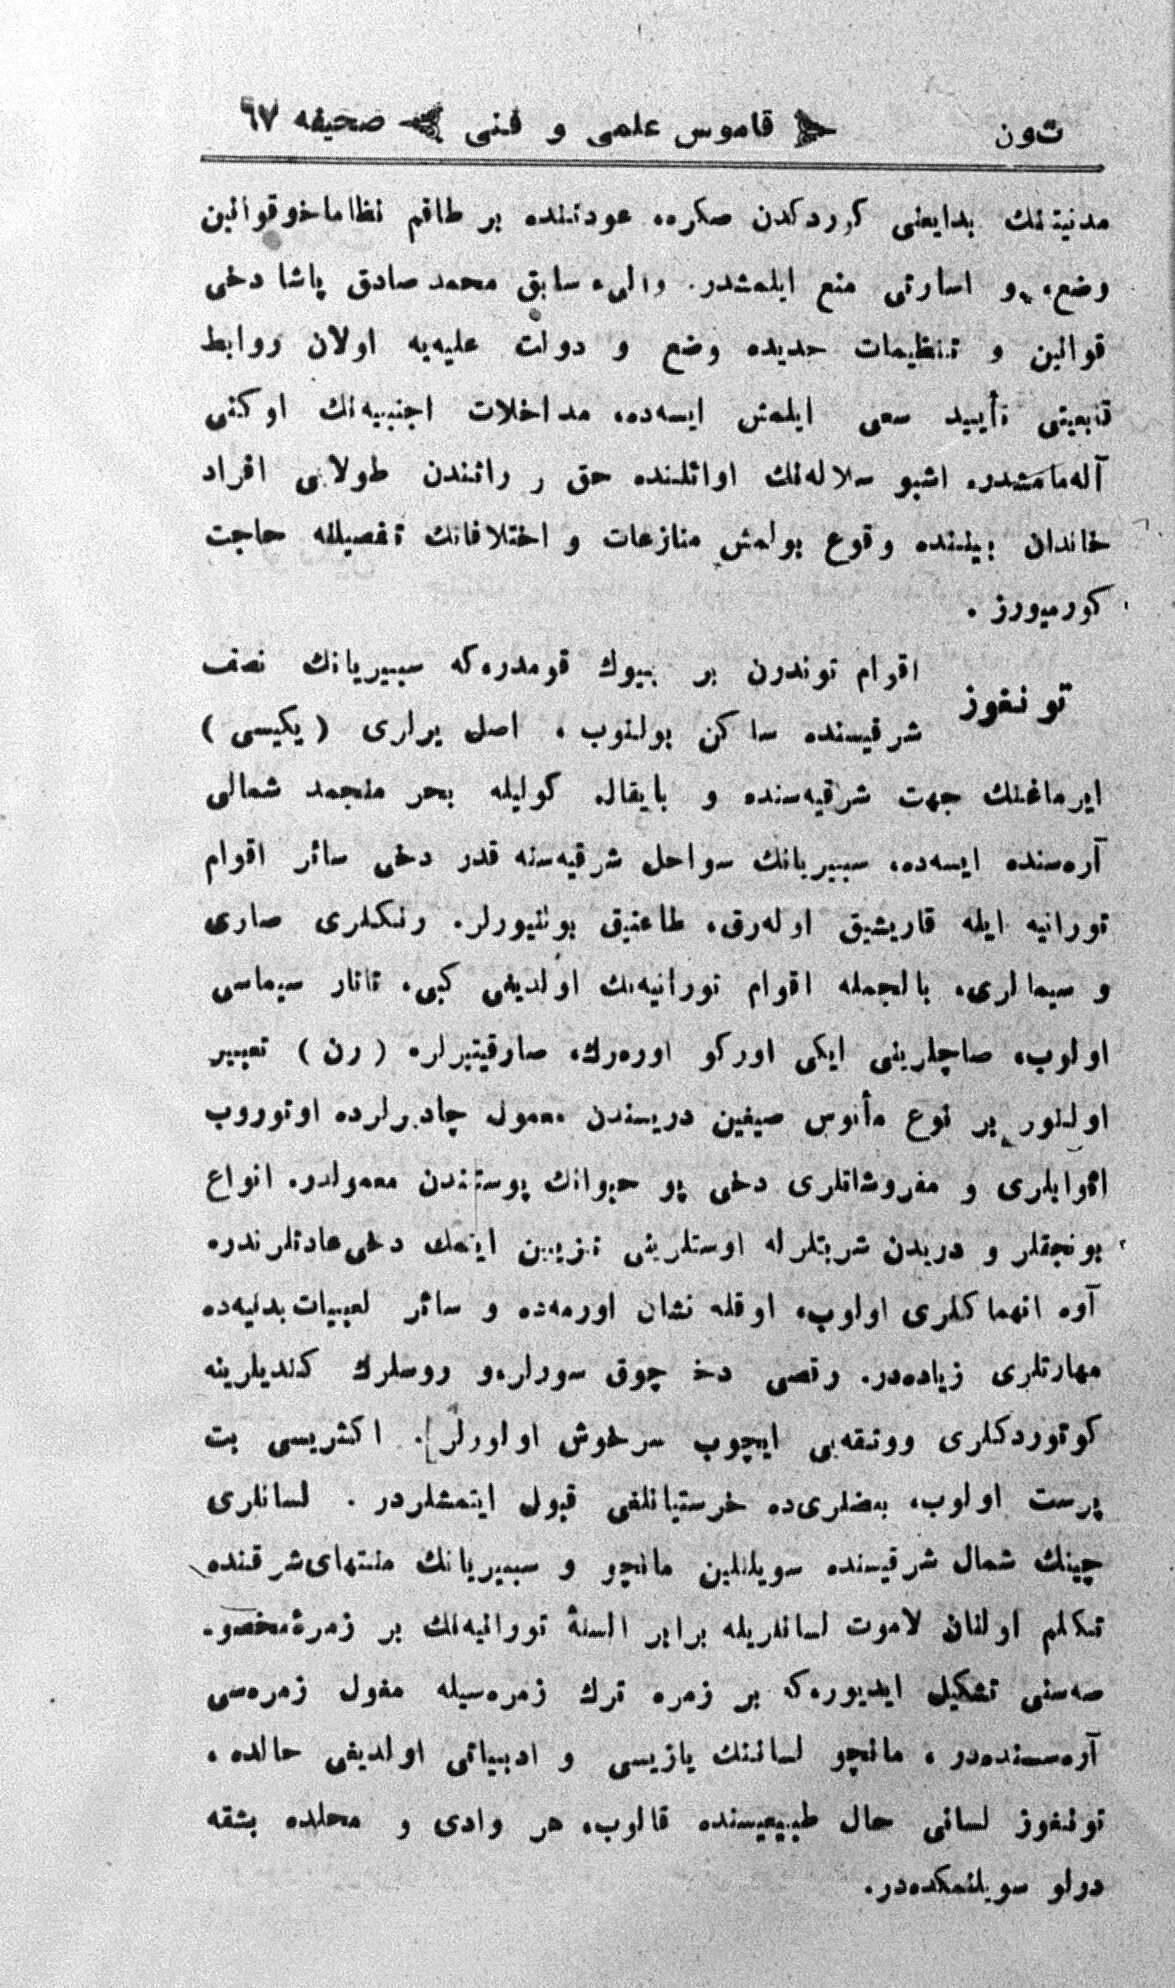 تون قاموس علمی و فنی صحیفه ٦٧
مدنیتنك بدایعنی کوردکدن صکره، عودتنده بر طاقم نظامات و قوانین
وضع، و اسارتی منع ایلمشدر. والیء سابق محمد صادق پاشا دخی
قوانین و تنظیمات جدیده وضع و دولت علیه‌یه اولان روابط
تبعیتی تأیید سعی ایلمش ایسه‌ده، مداخلات اجنبیه‌نك اوکنی
آله‌مامشدر. اشبو سلاله‌نك اوائلنده حق و راثتدن طولایی افراد
خاندان بیننده وقوع بولمش منازعات و اختلافاتك تفصیلنه حاجت
کورمیورز .
تونغوز اقوام توندرن بر بیوك قومدرکه سیبیریانك نصف
شرقیسنده ساکن بولنوب، اصل یرلری (یکیسی)
ایرماغنك جهت شرقیه‌سنده و بایقال کولیله بحر منجمد شمالی
آره‌سنده ایسه‌ده، سیبیریانك سواحل شرقیه‌سنه قدر دخی سائر اقوام
تورانیه ایله قاریشیق اوله‌رق، طاغنیق بولنیورلر. رنکلری صاری
و سیمالری، بالجمله اقوام تورانیه‌نك اولدیغی کبی، تاتار سیماسی
اولوب، صاچلرینی ایکی اورکو اوره‌رك، صارقیتیرلر. (رن) تعبیر
اولنور بر نوع مأنوس صیغین دریسندن معمول چادرلرده اوتوروب
اثوابلری و مفروشاتلری دخی بو حیوانك پوستندن معمولدر. انواع
بونجقلر و دریدن شریتلر له اوستلرینی تزیین ایتمك دخی عادتلرندر.
آوه انهماکلری اولوب، اوقله نشان اورمه‌ده و سائر لعبیات بدنیه‌ده
مهارتلری زیاده‌در. رقصی دخ چوق سورلر، و روسلرك کندیلرینه
کوتوردکلری ووتقه‌یی ایچوب سرخوش اولورلر. اکثریسی بت
پرست اولوب، بعضلری‌ده خرستیانلغی قبول ایتمشلردر . لسانلری
چینك شمال شرقیسنده سویلنلین مانچو و سیبیریانك منتهای شرقنده
تکلم اولنان لاموت لسانلریله برابر السنهٔ تورانیه‌نك بر زمرهٔ مخصو-
صه‌سنی تشکیل ایدیورکه بر زمره ترك زمره‌سیله مغول زمره‌سی
آره‌سنده‌در، مانچو لساننك یازیسی و ادبیاتی اولدیغی حالده،
تونغوز لسانی حال طبیعیسنده قالوب، هر وادی و محلده بشقه
درلو سویلنمکده‌در.